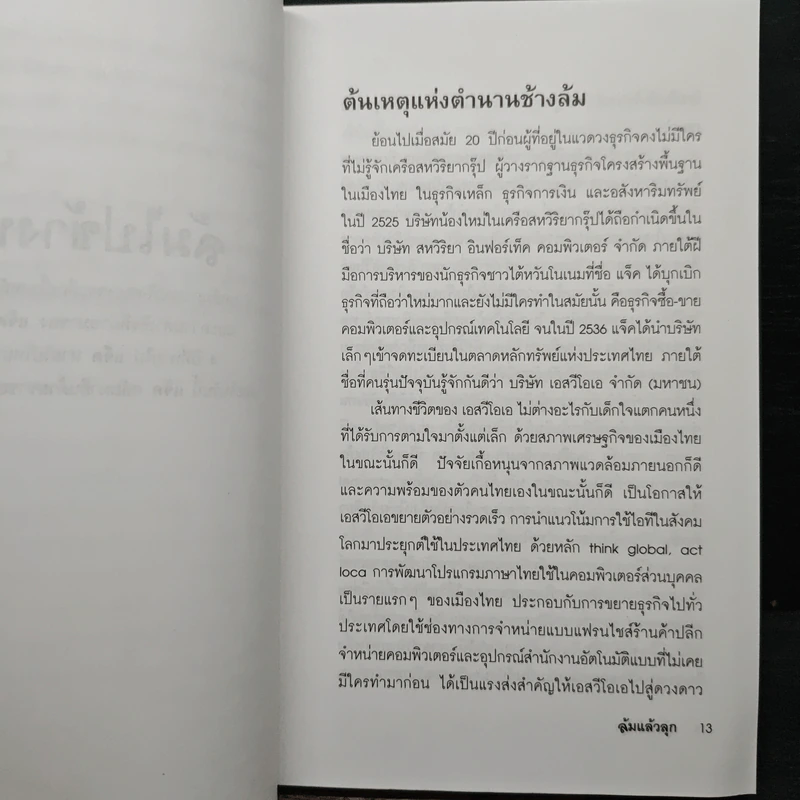 ต้นเหตุแห่งตำนานช้างล้ม
ย้อนไปเมื่อสมัย 20 ปีก่อนผู้ที่อยู่ในแวดวงธุรกิจคงไม่มีใคร
ที่ไม่รู้จักเครือสหวิริยากรุ๊ป ผู้วางรากฐานธุรกิจโครงสร้างพื้นฐาน
ในเมืองไทย ในธุรกิจเหล็ก ธุรกิจการเงิน และอสังหาริมทรัพย์
ในปี 2525 บริษัทน้องใหม่ในเครือสหวิริยากรุ๊ปได้ถือกำเนิดขึ้นใน
ชื่อว่า บริษัท สหวิริยา อินฟอร์เท็ค คอมพิวเตอร์ จำกัด ภายใต้ฝี
มือการบริหารของนักธุรกิจชาวไต้หวันโนเนมที่ชื่อ แจ็ค ได้บุกเบิก
ธุรกิจที่ถือว่าใหม่มากและยังไม่มีใครทำในสมัยนั้น คือธุรกิจซื้อ-ขาย
คอมพิวเตอร์และอุปกรณ์เทคโนโลยี จนในปี 2536 แจ็คได้นำบริษัท
เล็กๆเข้าจดทะเบียนในตลาดหลักทรัพย์แห่งประเทศไทย ภายใต้
ชื่อที่คนรุ่นปัจจุบันรู้จักกันดีว่า บริษัท เอสวีโอเอ จำกัด (มหาชน)
เส้นทางชีวิตของ เอสวีโอเอ ไม่ต่างอะไรกับเด็กใจแตกคนหนึ่ง
ที่ได้รับการตามใจมาตั้งแต่เล็ก ด้วยสภาพเศรษฐกิจของเมืองไทย
ในขณะนั้นก็ดี ปัจจัยเกื้อหนุนจากสภาพแวดล้อมภายนอกก็ดี
และความพร้อมของตัวคนไทยเองในขณะนั้นก็ดี เป็นโอกาสให้
เอสวีโอเอขยายตัวอย่างรวดเร็ว การนำแนวโน้มการใช้ไอทีในสังคม
โลกมาประยุกต์ใช้ในประเทศไทย ด้วยหลัก think global, act
loca การพัฒนาโปรแกรมภาษาไทยใช้ในคอมพิวเตอร์ส่วนบุคคล
เป็นรายแรกๆ ของเมืองไทย ประกอบกับการขยายธุรกิจไปทั่ว
ประเทศโดยใช้ช่องทางการจำหน่ายแบบแฟรนไชส์ร้านค้าปลีก
จำหน่ายคอมพิวเตอร์และอุปกรณ์สำนักงานอัตโนมัติแบบที่ไม่เคย
มีใครทำมาก่อน ได้เป็นแรงส่งสำคัญให้เอสวีโอเอไปสู่ดวงดาว
ล้มแล้วลุก 13